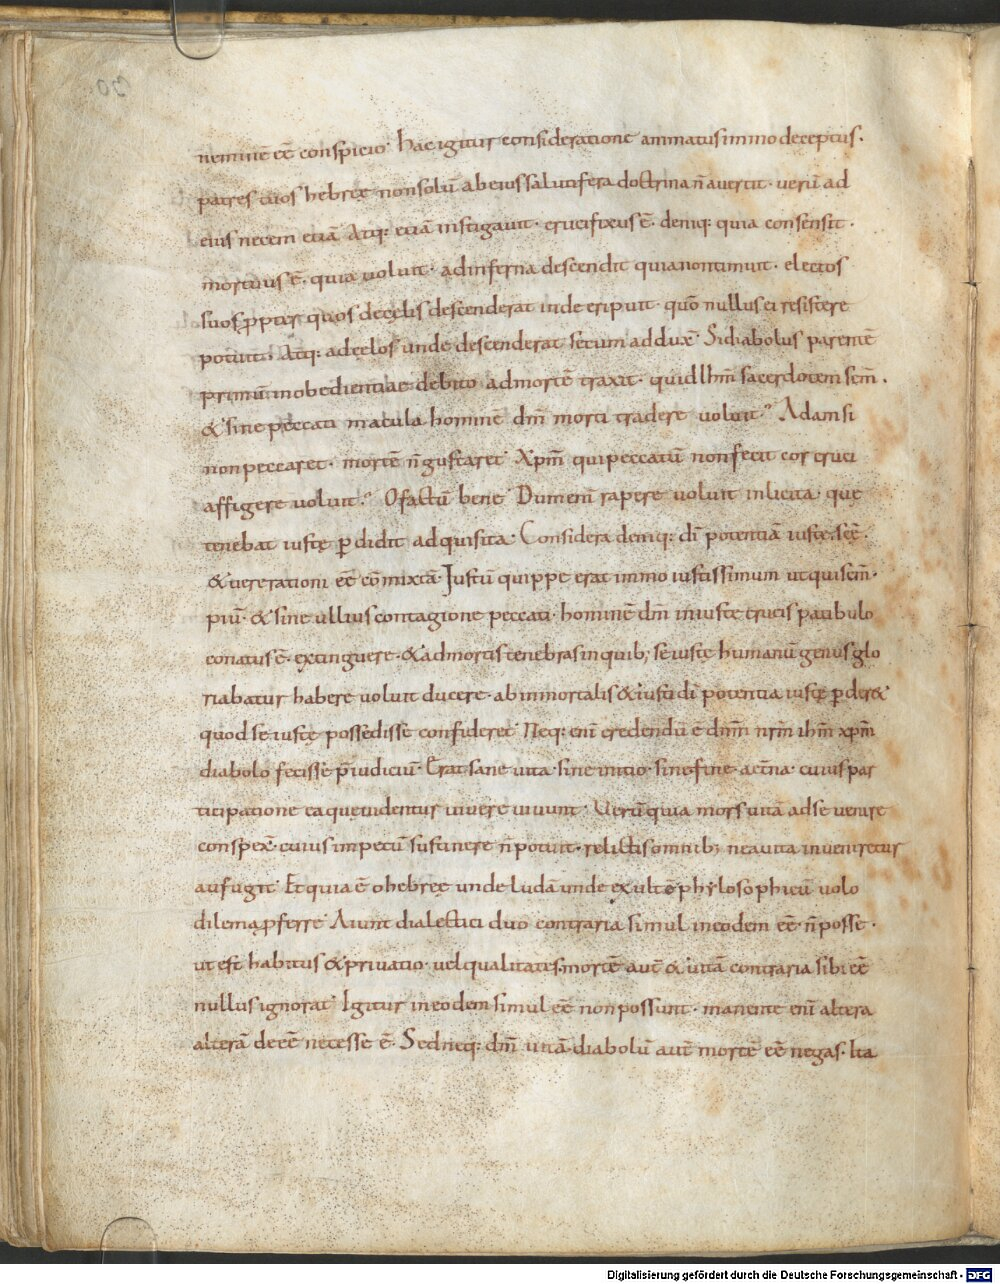 neminē eē conspicio. hac igitur consideratione animatus immo deceptus.
patres tuos hebrȩe non solū ab eius salutifera doctrina n̄ auertit. uerū ad
eius necem etiā Atq: etiā instigauit. crucifixus ē. deniq: quia consensit.
mortuus ē. quia uoluit. ad inferna descendit quia non timuit. electos
suos ꝓpter quos de cȩlis descenderat inde eripuit. quō nullus ei resistere
potuit. Atq: ad cȩlos unde descenderat secum adduxˉ Si diabolus parentē
primū inobedientiae debito ad mortē traxit. quid ihm̄ sacerdotem sem̄.
& sine peccati macula hominē dm̄ morti tradere uoluit? Adam si
non peccaret. mortē n̄ gustaret. Xpm̄ qui peccatū non fecit cor cruci
affigere uoluit? O factū bene Dum enī rapere uoluit inlicita. quȩ
tenebat iustȩ ꝑdidit adquisita. Considera deniq: dī potentiā iustȩ. scȩ̄.
& uere rationi eē cōmixtā. Iustū quippe erat immo iustissimum ut qui sem̄.
piū. & sine ullius contagione peccati. hominē dm̄ iniuste crucis patibulo
conatus ē. extinguere. & ad mortis tenebras in quib; se iustȩ humanū genus glo
riabatur habere uoluit ducere. ab immortalis & iusti dī potentia iustȩ ꝑder&
quod se iustȩ possedisse confideret. Neq: enī credendū ē dnm̄ nrm̄ ihm̄ xpm̄
diabolo fecisse p̄iudiciū. Erat sane uita. sine initio. sine fine. aet̄na. cuius par
ticipatione ea quȩ uidentur uiuere uiuunt. Uerū quia mors uitā ad se uenire
conspexˉ. cuius impetū sustinere n̄ potuit. relictis omnib; ne a uita inueniretur
aufugit. Et quia ē o hebrȩe unde ludā unde exultē phylosophicū uolo
dilema ꝓferre Aiunt dialectici duo contraria simul in eodem eē. n̄ posse.
ut est habitus & priuatio. uel qualitates. mortē autˉ & uitā contraria sibi eē
nullus ignorat. Igitur in eodem simul eē non possunt. manente enī altera
alterā deeē necesse ē. Sed neq: dm̄ uitā. diabolū autˉ mortē eē negas. Ita
Digitalisierung gefördert durch die Deutsche Forschungsgemeinschaft - DFG